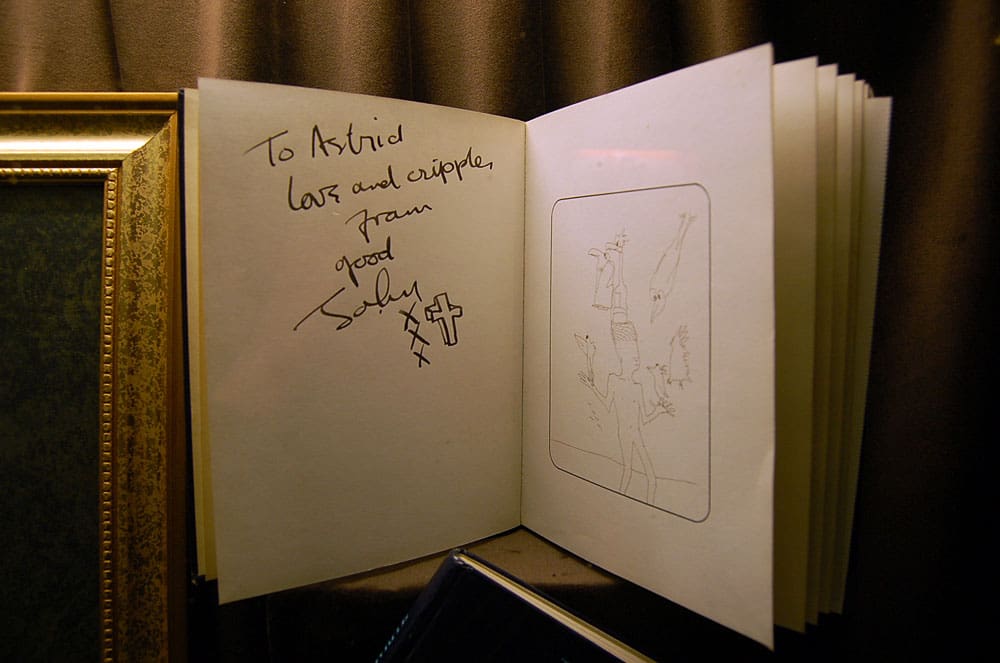 To Astrid
love and cripples
from
good
John
xxx